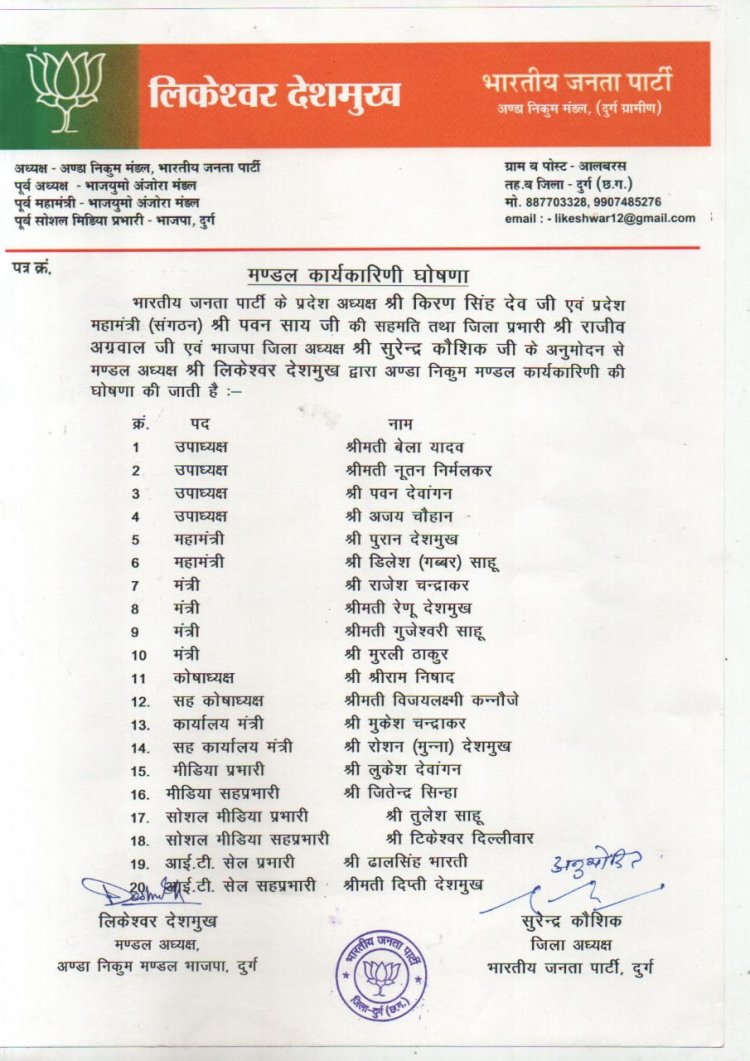 लिकेश्वर देशमुख
भारतीय जनता पार्टी
अण्डा निकुम मंडल, (दुर्ग ग्रामीण)
अध्यक्ष - अण्डा निकुम मंडल, भारतीय जनता पार्टी
पूर्व अध्यक्ष - भाजयुमो अंजोरा मंडल
पूर्व महामंत्री - भाजयुमो अंजोरा मंडल
पूर्व सोशल मिडिया प्रभारी - भाजपा, दुर्ग
ग्राम व पोस्ट - आलबरस
तह.व जिला - दुर्ग (छ.ग.)
मो. 887703328, 9907485276
email : - likeshwar12@gmail.com
पत्र क्रं.
मण्डल कार्यकारिणी घोषणा
भारतीय जनता पार्टी के प्रदेश अध्यक्ष श्री किरण सिंह देव जी एवं प्रदेश
महामंत्री (संगठन) श्री पवन साय जी की सहमति तथा जिला प्रभारी श्री राजीव
अग्रवाल जी एवं भाजपा जिला अध्यक्ष श्री सुरेन्द्र कौशिक जी के अनुमोदन से
मण्डल अध्यक्ष श्री लिकेश्वर देशमुख द्वारा अण्डा निकुम मण्डल कार्यकारिणी की
घोषणा की जाती है :–
क्रं. पद नाम
1 उपाध्यक्ष श्रीमती बेला यादव
2 उपाध्यक्ष श्रीमती नूतन निर्मलकर
3 उपाध्यक्ष श्री पवन देवांगन
4 उपाध्यक्ष श्री अजय चौहान
5 महामंत्री श्री पुरान देशमुख
6 महामंत्री श्री डिलेश (गब्बर) साहू
7 मंत्री श्री राजेश चन्द्राकर
8 मंत्री श्रीमती रेणू देशमुख
9 मंत्री श्रीमती गुजेश्वरी साहू
10 मंत्री श्री मुरली ठाकुर
11 कोषाध्यक्ष श्री श्रीराम निषाद
12. सह कोषाध्यक्ष श्रीमती विजयलक्ष्मी कन्नौजे
13. कार्यालय मंत्री श्री मुकेश चन्द्राकर
14. सह कार्यालय मंत्री श्री रोशन (मुन्ना) देशमुख
15. मीडिया प्रभारी श्री लुकेश देवांगन
16. मीडिया सहप्रभारी श्री जितेन्द्र सिन्हा
17. सोशल मीडिया प्रभारी श्री तुलेश साहू
18. सोशल मीडिया सहप्रभारी श्री टिकेश्वर दिल्लीवार
19. आई.टी. सेल प्रभारी श्री ढालसिंह भारती
20. आई.टी. सेल सहप्रभारी श्रीमती दिप्ती देशमुख
अनुमोदित
लिकेश्वर देशमुख
मण्डल अध्यक्ष,
अण्डा निकुम मण्डल भाजपा, दुर्ग
सुरेन्द्र कौशिक
जिला अध्यक्ष
भारतीय जनता पार्टी, दुर्ग
भारतीय जनता पार्टी
जिला-दुर्ग (छ.ग.)